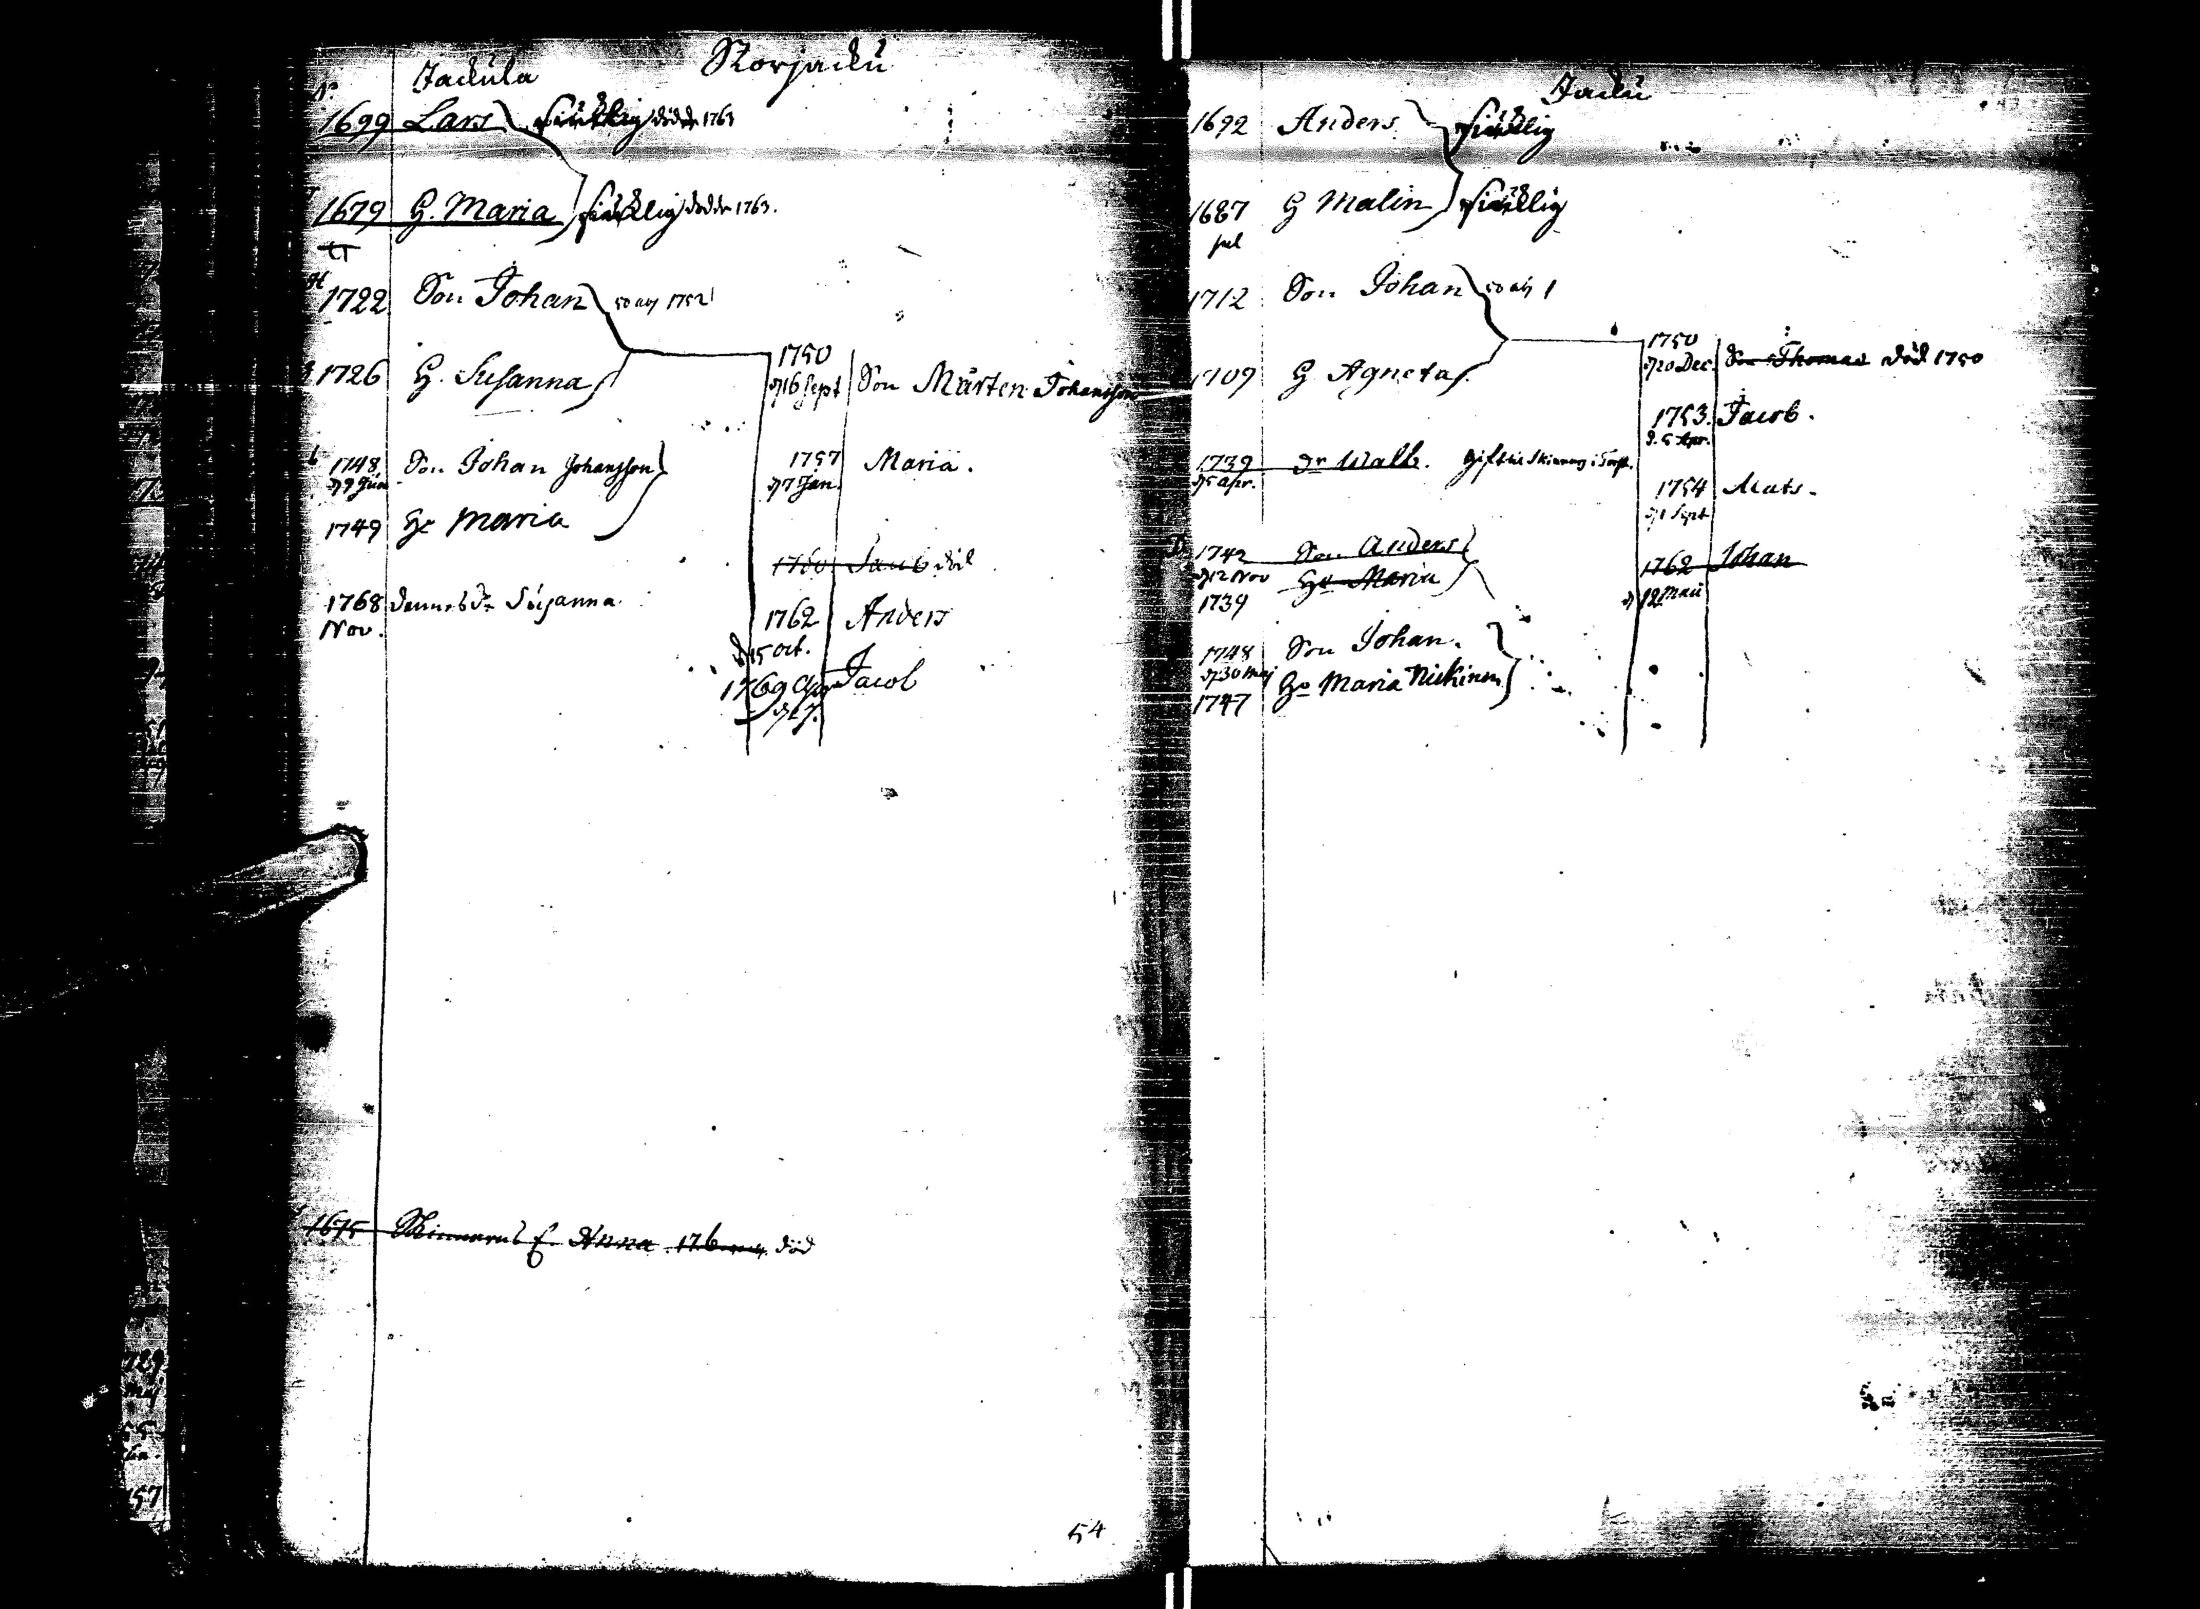 Storjacku
Jackula
1699 Lars siuklig dödde 1763
1679 G. Maria siuklig dödde 1763.
1722 Son Johan
1726 G. Susanna
1750 d 16 Sept Son Mårten Johansson
1748 d 9 Jun Son Johan Johansson
1749 Hu Maria
1757 d 7 Jan. Maria.
1760 Jacob död
1768 Nov. dennes dr Susanna
1762 d 15 oct. Anders
1769 Jacob
1675 Anna död
54
Jacku
1692 Anders siuklig
1687 G Malin siuklig
1712 Son Johan
1709 G Agneta
1750 d 20 Dec. Son Thomas död 1750
1753. Jacob.
d. 5 Apr.
1739 dr Walb. Gift
d 5 apr.
1754 Mats.
d 1 Sept
1742 Son Anders
d 12 Nov Hu Maria
1739
1762 Johan
d 12 Maii
1748 Son Johan.
d 30 Maj Hu Maria
1747